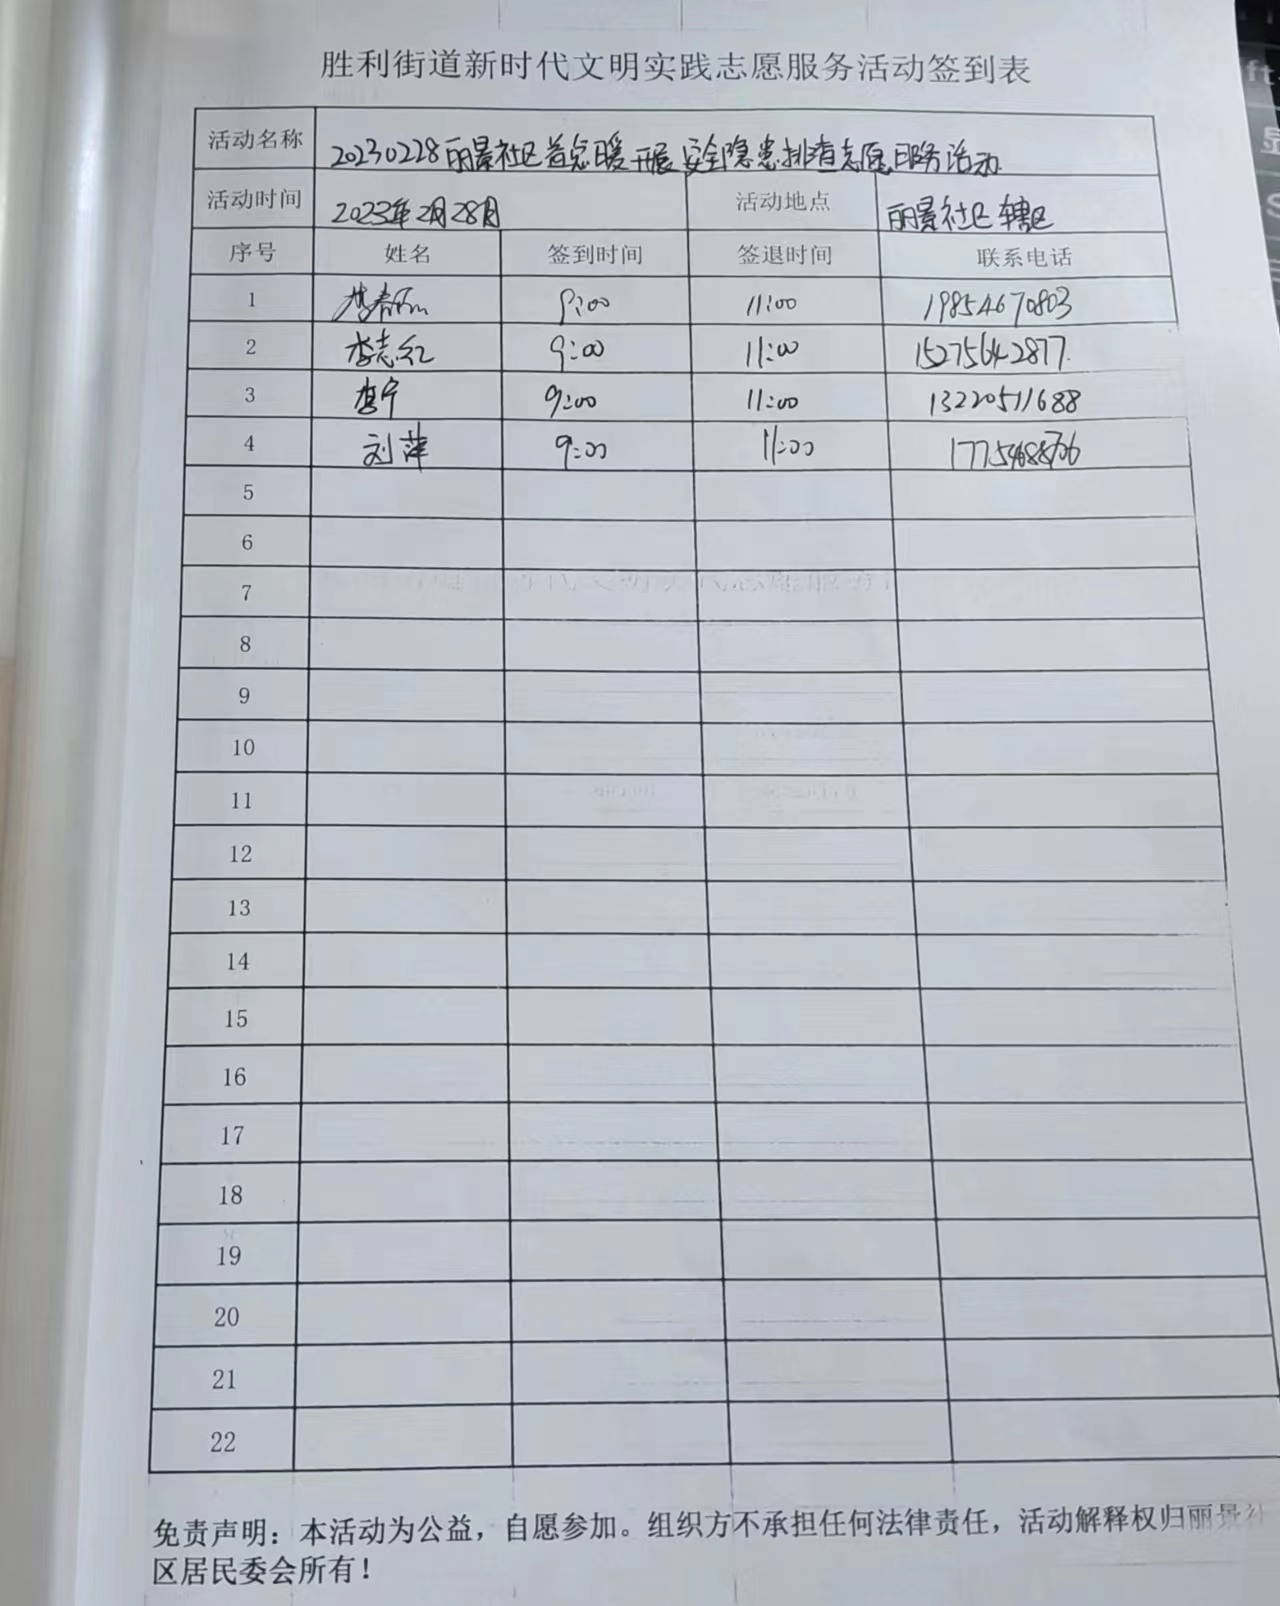 胜利街道新时代文明实践志愿服务活动签到表
活动名称 20230228丽景社区首总暖开展安全隐患排查志愿服务活动
活动时间 2023年2月28日 活动地点 丽景社区辖区
序号 姓名 签到时间 签退时间 联系电话
1 9:00 11:00 19854670803
2 李志红 9:00 11:00 15275642877
3 李宁 9:00 11:00 13220511688
4 刘萍 9:00 11:00
5
6
7
8
9
10
11
12
13
14
15
16
17
18
19
20
21
22
免责声明：本活动为公益，自愿参加。组织方不承担任何法律责任，活动解释权归丽景社
区居民委会所有！